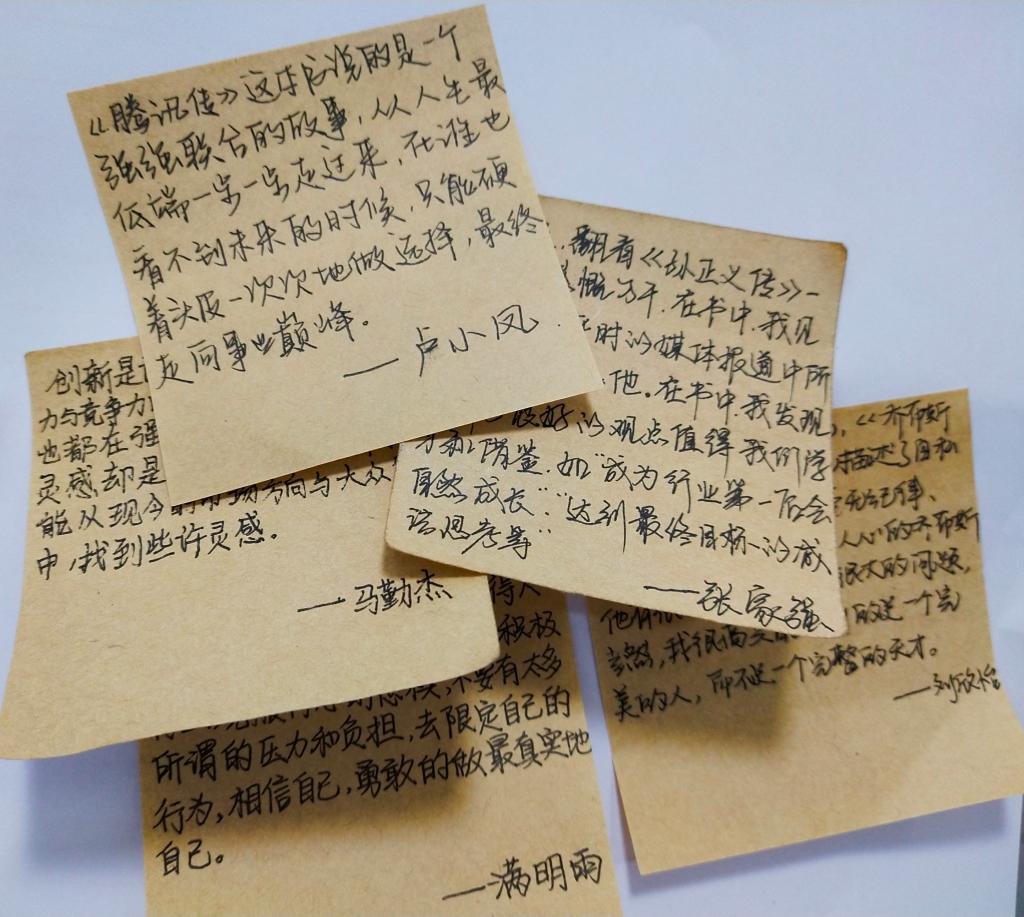 《腾讯传》这本应说的是一个
强强联合的故事,从人生最
低端一步一步走过来,在谁也
看不到未来的时候,只能硬
着头皮一次次地做选择,最终
走向事业巅峰。
——卢小凤
翻看《孙正义传》一
感慨万千.在书中,我见
时的媒体报道中所
他。在书中,我发现,
好的观点值得我们学
和借鉴.如"成为行业第一后会
自然成长""达到最终目标的减
法思考等"
——张家强
创新是
力与竞争力
也都在强
灵感却是
能从现今的市场方向与大众
中,找到些许灵感。
——马勤杰
《乔布斯
描述了自私
无纪律、
人心的乔布斯
很大的问题,
他有
当然,我很 的是一个完
美的人,而不是一个完整的天才。
——刘欣怡
待人
积极
态度,不要有太多
所谓的压力和负担,去限定自己的
行为,相信自己,勇敢的做最真实地
自己。
——满明雨